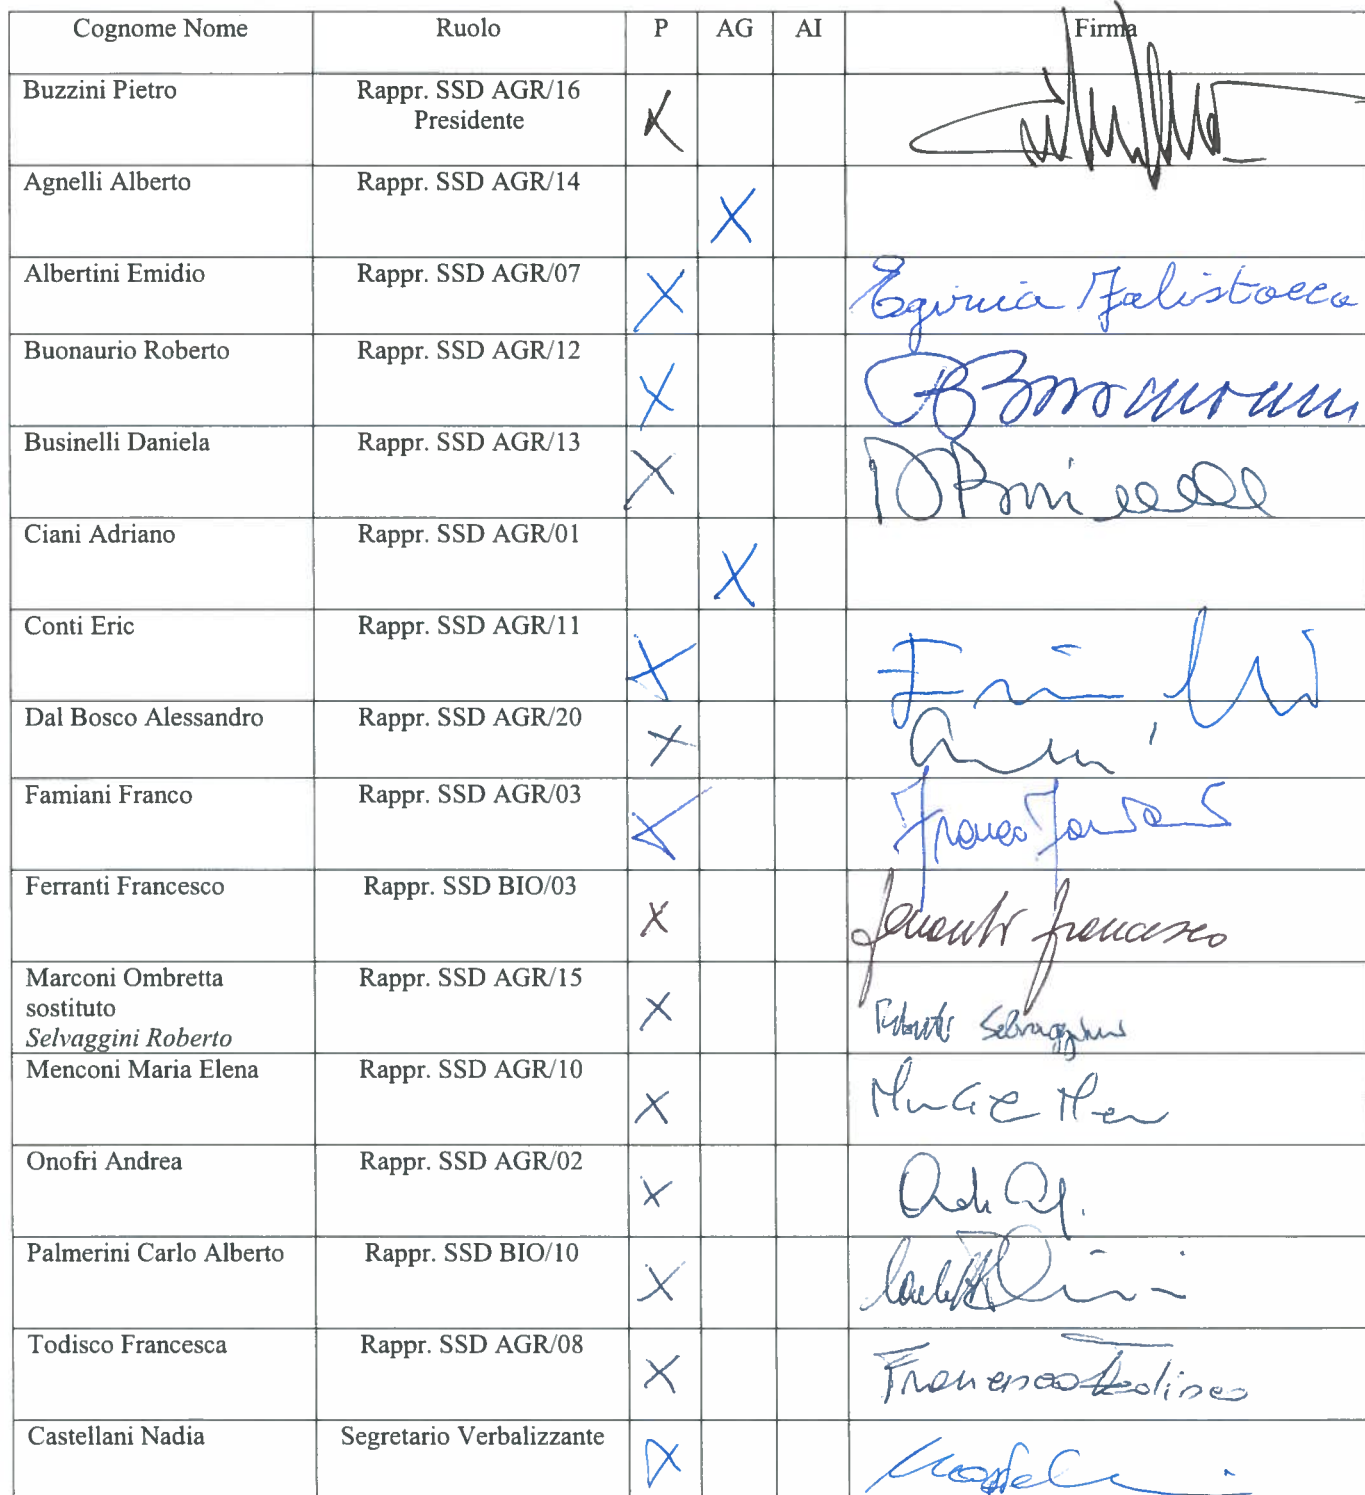 Cognome Nome Ruolo P AG AI Firma
Buzzini Pietro Rappr. SSD AGR/16 X
Presidente
Agnelli Alberto Rappr. SSD AGR/14 X
Albertini Emidio Rappr. SSD AGR/07 X Egizia Falistocco
Buonaurio Roberto Rappr. SSD AGR/12 X
Businelli Daniela Rappr. SSD AGR/13 X
Ciani Adriano Rappr. SSD AGR/01 X
Conti Eric Rappr. SSD AGR/11 X
Dal Bosco Alessandro Rappr. SSD AGR/20 X
Famiani Franco Rappr. SSD AGR/03 X Franco Famiani
Ferranti Francesco Rappr. SSD BIO/03 X Ferranti Francesco
Marconi Ombretta Rappr. SSD AGR/15 X
sostituto
Selvaggini Roberto Roberto Selvaggini
Menconi Maria Elena Rappr. SSD AGR/10 X
Onofri Andrea Rappr. SSD AGR/02 X
Palmerini Carlo Alberto Rappr. SSD BIO/10 X
Todisco Francesca Rappr. SSD AGR/08 X Francesca Todisco
Castellani Nadia Segretario Verbalizzante X